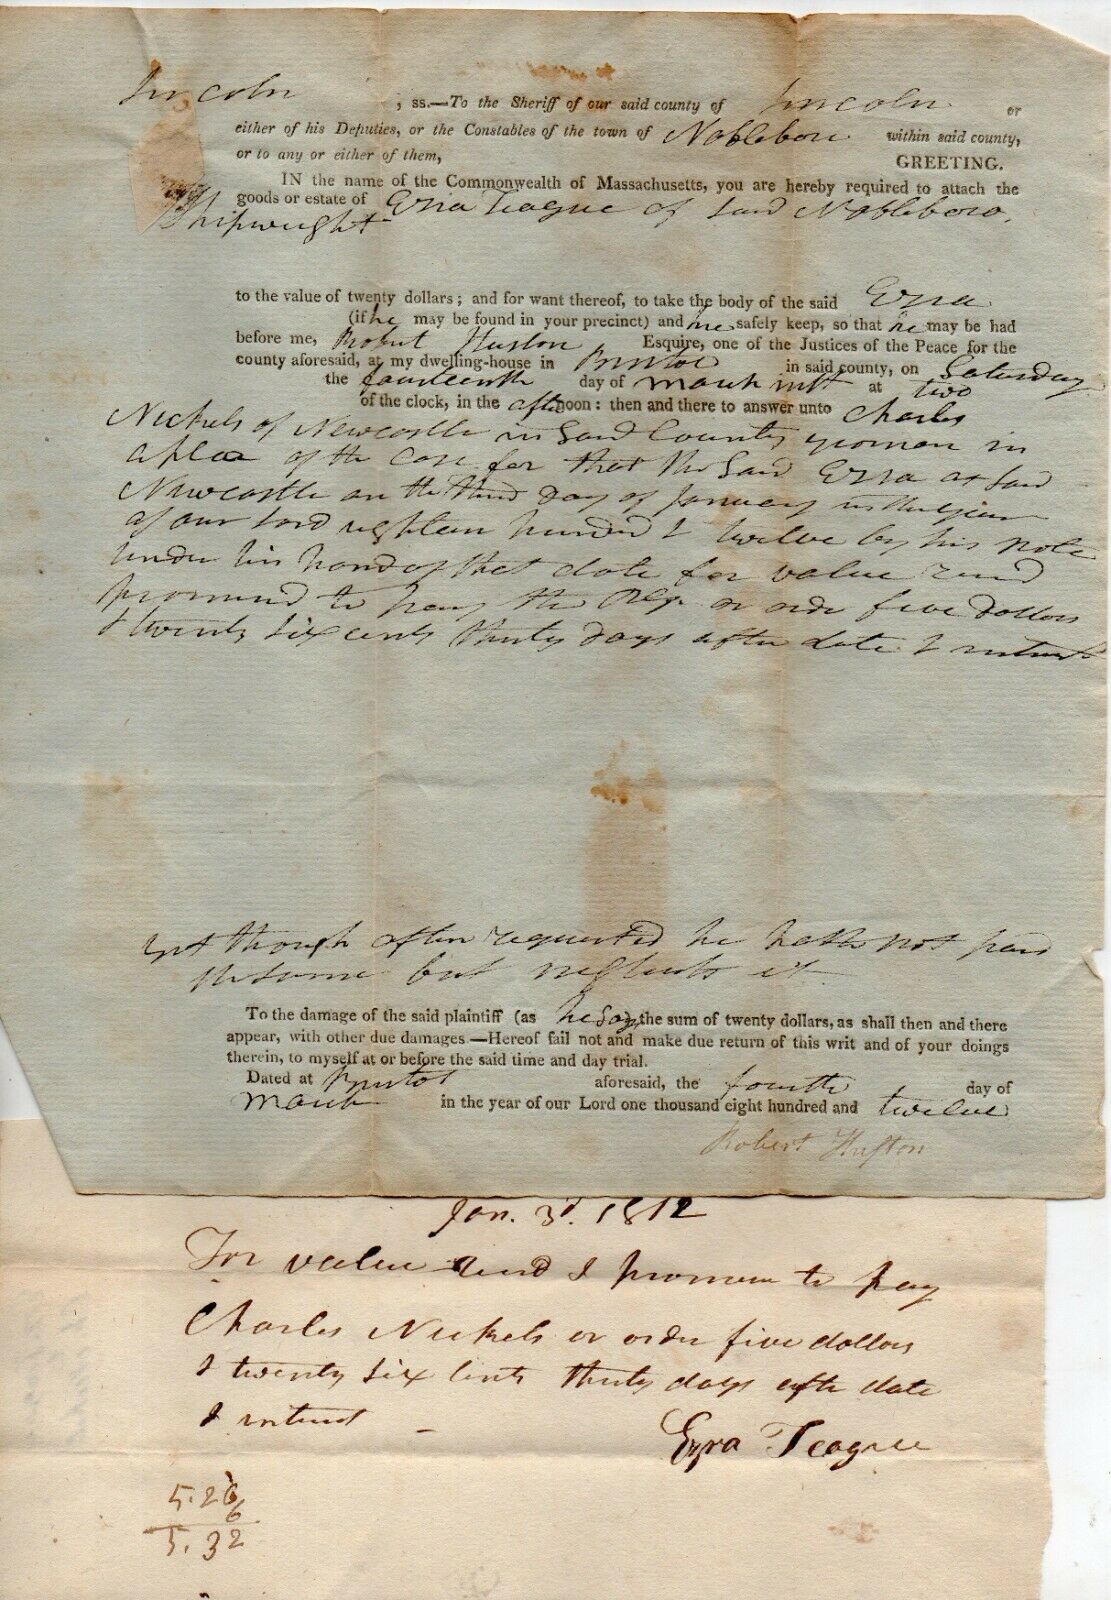 Lincoln , ss.—To the Sheriff of our said county of Lincoln or
either of his Deputies, or the Constables of the town of Nobleboro within said county,
or to any or either of them, GREETING.
IN the name of the Commonwealth of Massachusetts, you are hereby required to attach the
goods or estate of Ezra Teague of said Nobleboro,
Shipwright
to the value of twenty dollars; and for want thereof, to take the body of the said Ezra
(if he may be found in your precinct) and he safely keep, so that he may be had
before me, Robert Huston Esquire, one of the Justices of the Peace for the
county aforesaid, at my dwelling-house in Bristol in said county, on Saturday
the fourteenth day of March inst at two
of the clock, in the afternoon: then and there to answer unto Charles
Nickels of Newcastle in said County yeoman in
a plea of the case for that the said Ezra at said
Newcastle on the third day of January in the year
of our Lord eighteen hundred & twelve by his note
under his hand of that date for value recd
promised to pay the Plf. or order five dollars
& twenty six cents thirty days after date & interest
yet though often requested he hath not paid
the same but neglects it
To the damage of the said plaintiff (as he says) the sum of twenty dollars, as shall then and there
appear, with other due damages.—Hereof fail not and make due return of this writ and of your doings
therein, to myself at or before the said time and day trial.
Dated at Bristol aforesaid, the fourth day of
March in the year of our Lord one thousand eight hundred and twelve
Robert Huston
Jan. 3d. 1812
For value recd I promise to pay
Charles Nickels or order five dollars
& twenty six cents thirty days after date
& interest
Ezra Teague
5.26
6
5.32